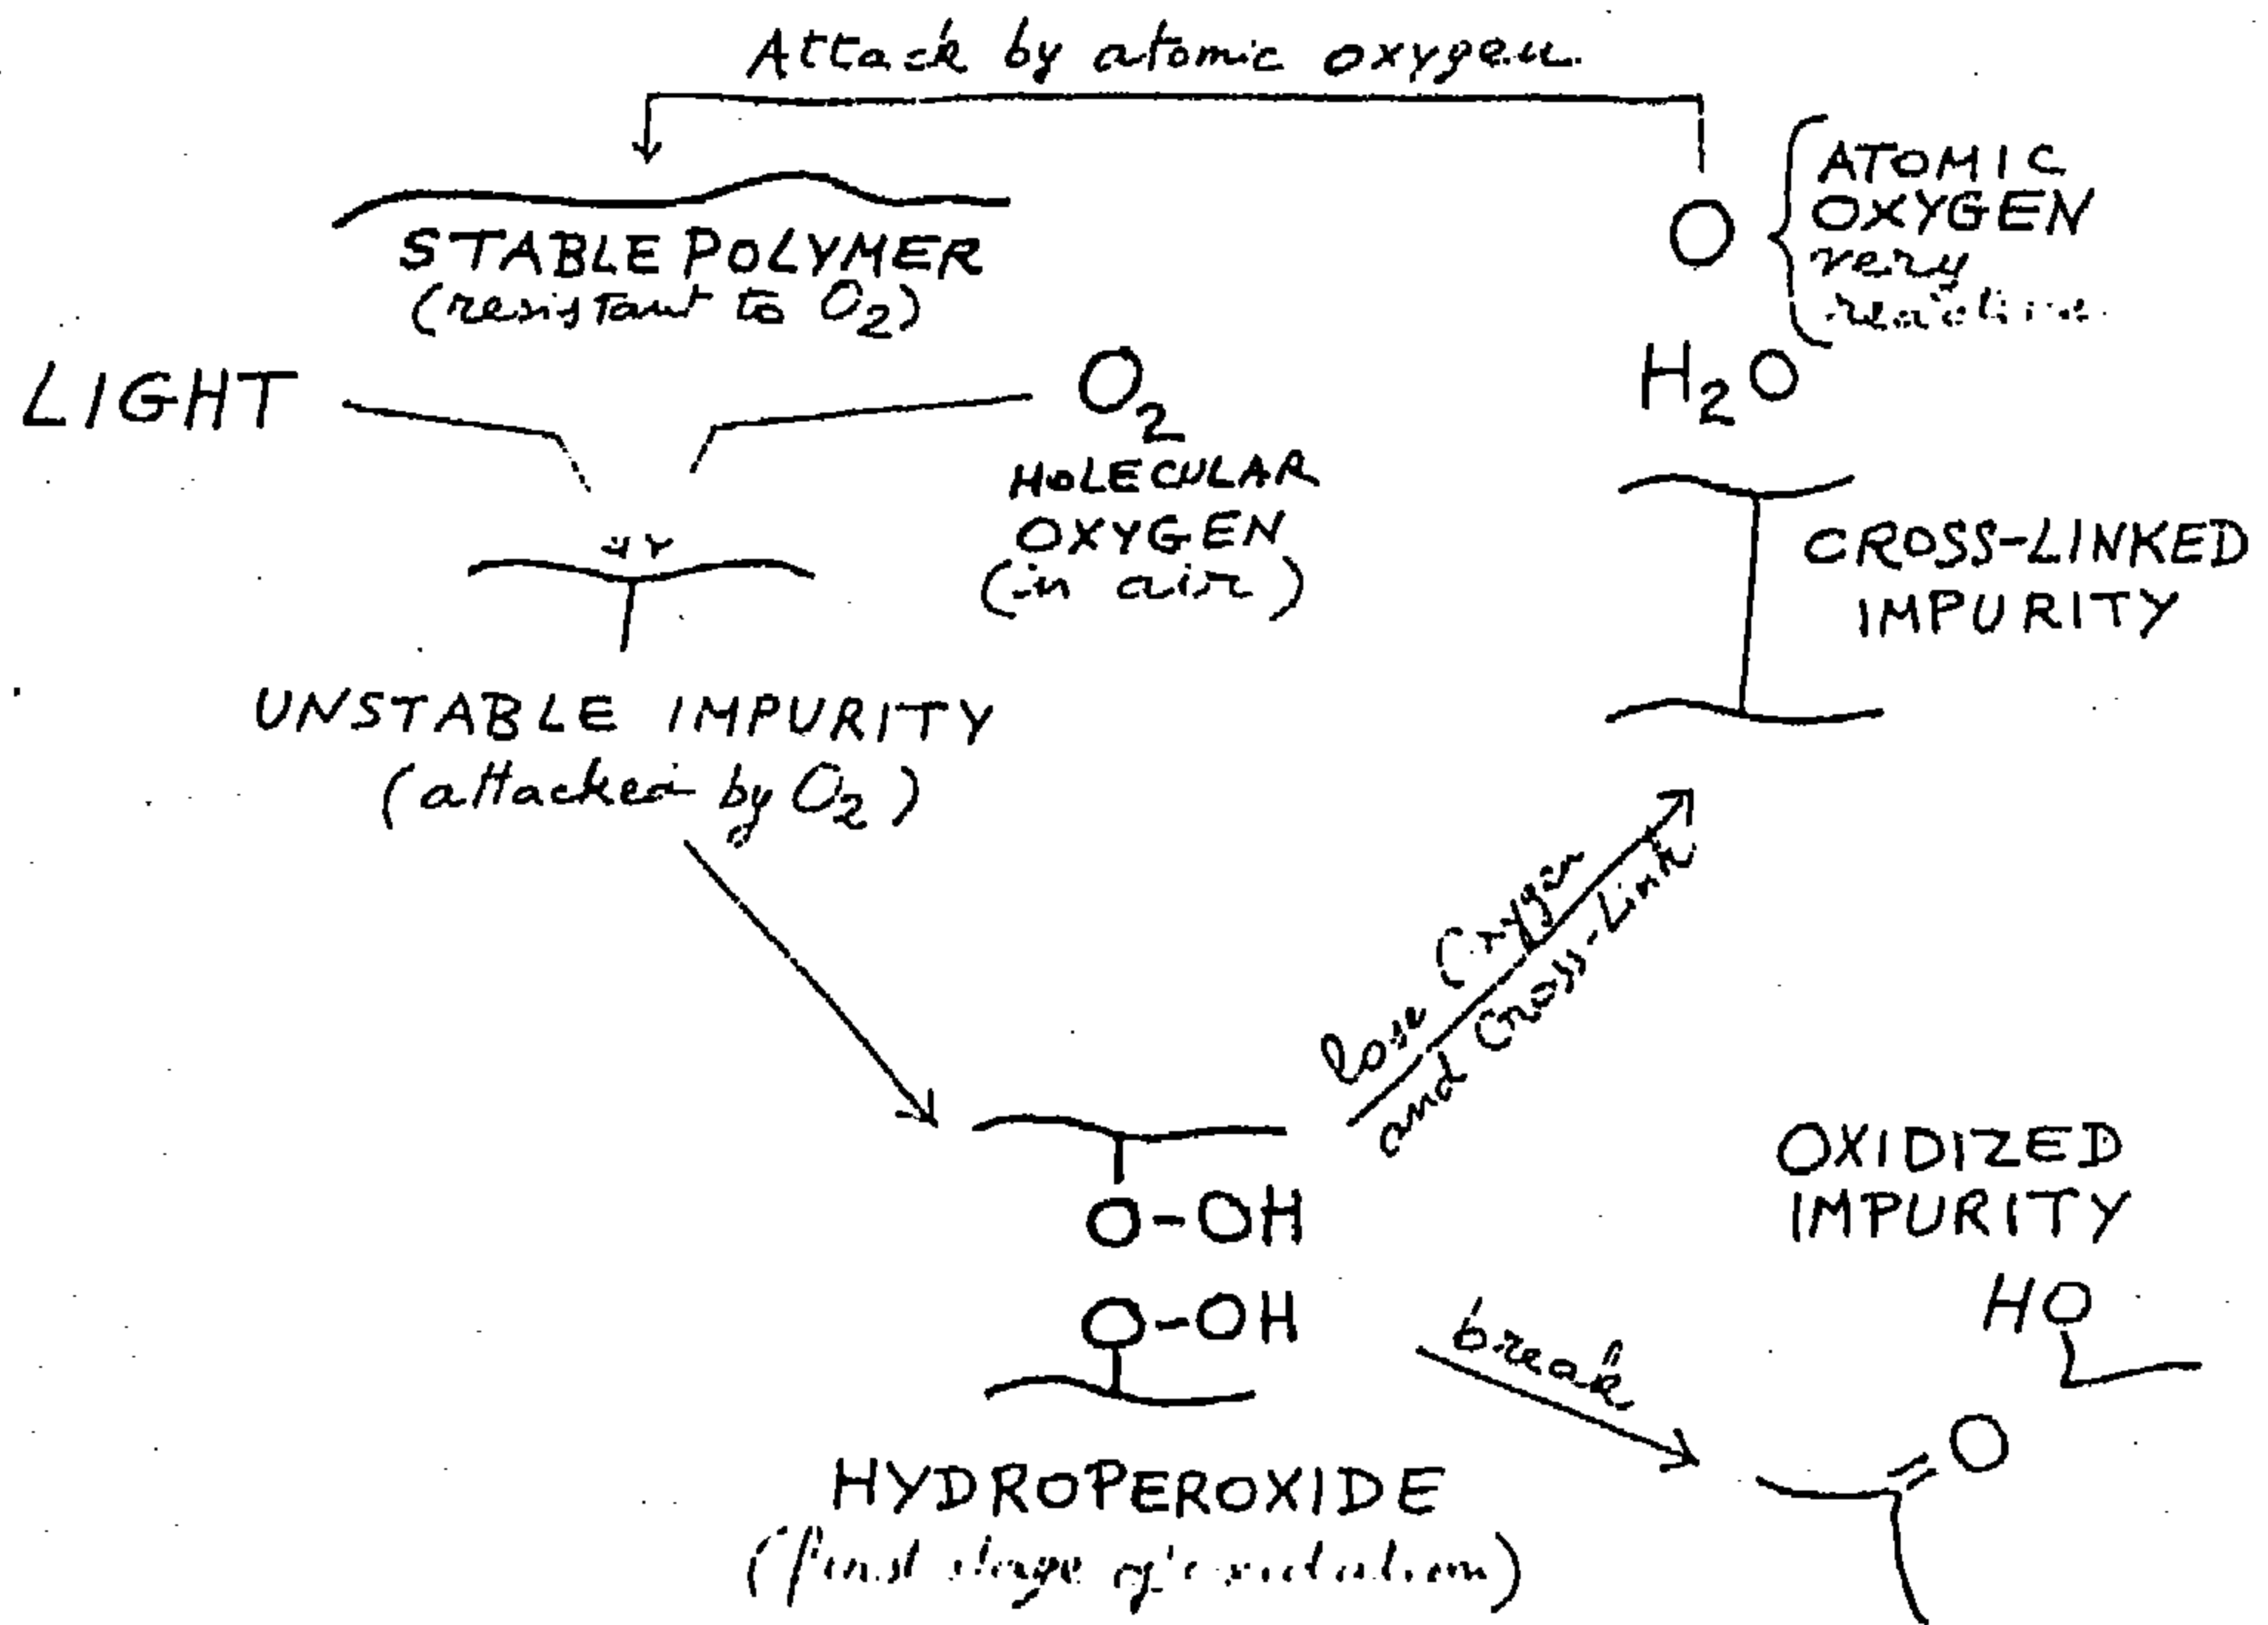 Attack by atomic oxygen
STABLE POLYMER
(resistant to O2)
O
ATOMIC
OXYGEN
very
reactive
LIGHT
O2
MOLECULAR
OXYGEN
(in air)
H2O
CROSS-LINKED
IMPURITY
UNSTABLE IMPURITY
(attacked by O2)
lose Oxygen
and Cross-Link
O-OH
O-OH
HYDROPEROXIDE
(first stage of oxidation)
break
OXIDIZED
IMPURITY
HO
O